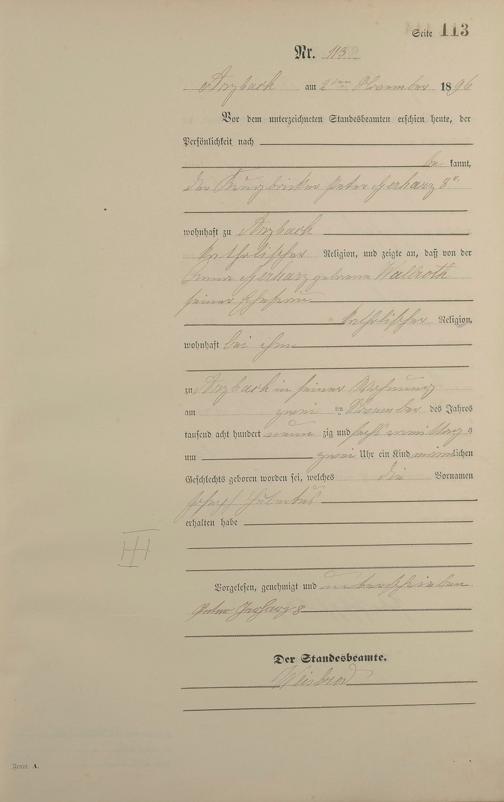 Seite 113
Nr. 113
Arzbach am 2ten November 1896
Vor dem unterzeichneten Standesbeamten erschien heute, der
Persönlichkeit nach
be kannt,
der Peter Gerharz 8r
wohnhaft zu Arzbach
katholischer Religion, und zeigte an, daß von der
Gerharz geborene
seiner Ehefrau
katholischer Religion,
wohnhaft bei ihm
zu Arzbach in seiner Wohnung
am zwei ten November des Jahres
tausend acht hundert neun zig und sechs Vormittags
um zwei Uhr ein Kind männlichen
Geschlechts geboren worden sei, welches die Vornamen
Josef
erhalten habe
Vorgelesen, genehmigt und unterschrieben
Peter Gerharz 8
Der Standesbeamte.
Form A.